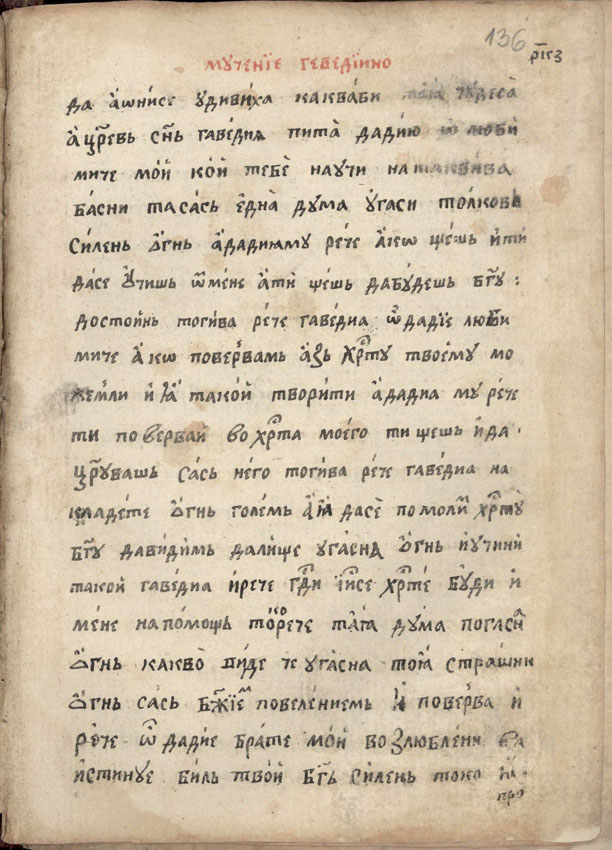 136
рп҃ез
мꙋченїе геведїино
да аѡнисе удивиха какваби таꙗ чудеса
а цр҃евь сн҃ь гаведиꙗ пита дадию ѡ люби
мите мой кой тебе научи натакъва
басни тасась една дума угаси толкова
силень ѡгнь ададиꙗму рече акѡ щешь ити
дасе учишь ѿ мене ати щешь дабудешь бг҃у :
достоинь тогива рече гаведиа ѡ дадїе люби
мите акѡ поверꙋвамь азь хрⷭ҇ту твоему мо
жемли и ꙗ такой творити ададиа му рече
ти повервай во хрⷭ҇та моего ти щешь ида
цр҃увашь сась него тогива рече гаведиа на
кладете ѡгнь големь аꙗ дасе помолй хрⷭ҇ту
бг҃у давидимь далище угасна ѡгнь иучини
такой гаведиа ирече гдⷭ҇и їисе хрⷭ҇те буди и
мене на помощь токорече таꙗ дума погасна
ѡгнь какво виде че угасна тоꙗ страшни
ѡгнь сась бж҃їемь повелениемь и поверва и
рече ѡ дадие брате мой возлюблени ва
истинуе биль твой бг҃ь силень токо и
про